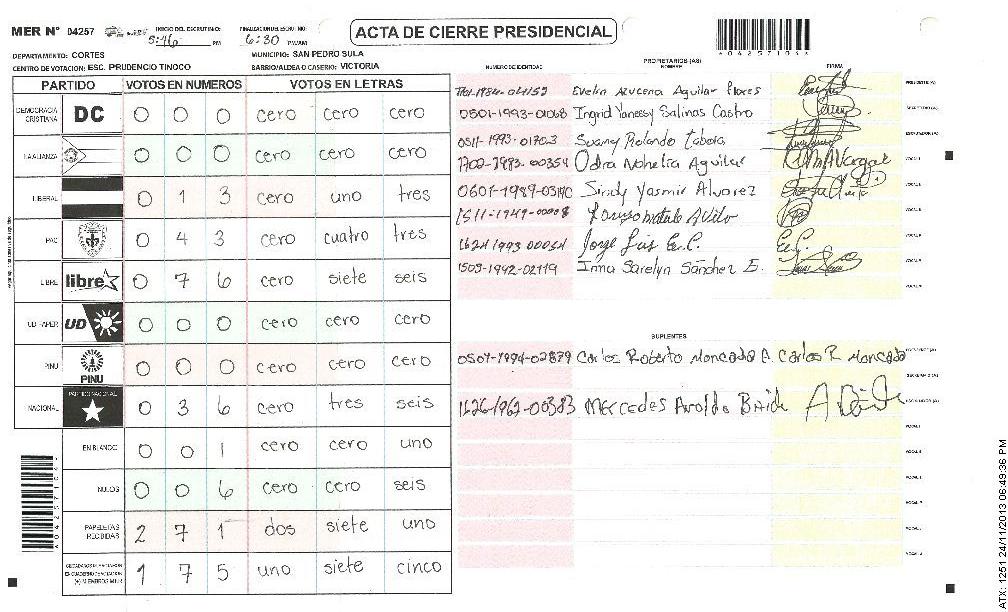 MER N° 04257
INICIO DEL ESCRUTINIO: 5:46 PM
FINALIZACION DEL ESCRUTINIO: 6:30 PM
ACTA DE CIERRE PRESIDENCIAL
DEPARTAMENTO: CORTES
MUNICIPIO: SAN PEDRO SULA
CENTRO DE VOTACION: ESC. PRUDENCIO TINOCO
BARRIO/ALDEA O CASERIO: VICTORIA
PARTIDO VOTOS EN NUMEROS VOTOS EN LETRAS
DEMOCRACIA CRISTIANA DC 0 0 0 cero cero cero
FAALIANZA 0 0 0 cero cero cero
LIBERAL 0 1 3 cero uno tres
PAC 0 4 3 cero cuatro tres
LIBRE libre 0 7 6 cero siete seis
UD FAPER UD 0 0 0 cero cero cero
PINU PINU 0 0 0 cero cero cero
NACIONAL PARTIDO NACIONAL 0 3 6 cero tres seis
EN BLANCO 0 0 1 cero cero uno
NULOS 0 0 6 cero cero seis
PAPELETAS RECIBIDAS 2 7 1 dos siete uno
1 7 5 uno siete cinco
NUMERO DE IDENTIDAD PROPIETARIOS (AS) NOMBRE FIRMA
Evelin Azucena Aguilar Flores
0501-1993-01068 Ingrid Yanessy Salinas Castro
0511-1993-01703 Suany Rolando Tabora
1702-1983-00354 Odra Nohelia Aguilar
Sindy Yasmir Alvarez
1624 1993 00054 Jorge Luis
1503-1992-02119 Irma Sarelyn Sánchez E.
SUPLENTES
0501-1994-02879 Carlos Roberto Moncada A. Carlos R Moncada
1626-1962-00383 Mercedes Aroldo
ATX: 1251 24/11/2013 06:49:36 PM